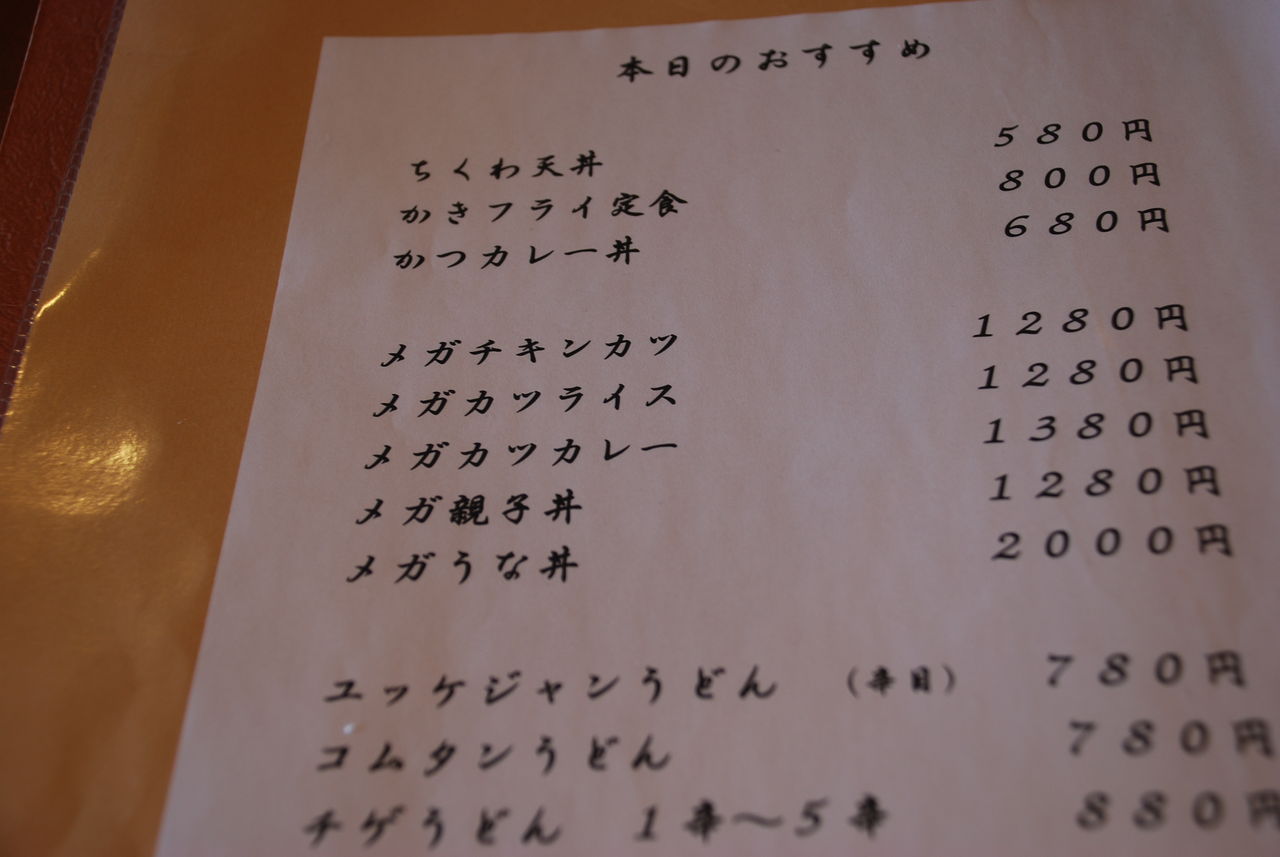 本日のおすすめ
ちくわ天丼 580円
かきフライ定食 800円
かつカレー丼 680円
メガチキンカツ 1280円
メガカツライス 1280円
メガカツカレー 1380円
メガ親子丼 1280円
メガうな丼 2000円
ユッケジャンうどん (辛目) 780円
コムタンうどん 780円
チゲうどん 1辛〜5辛 880円